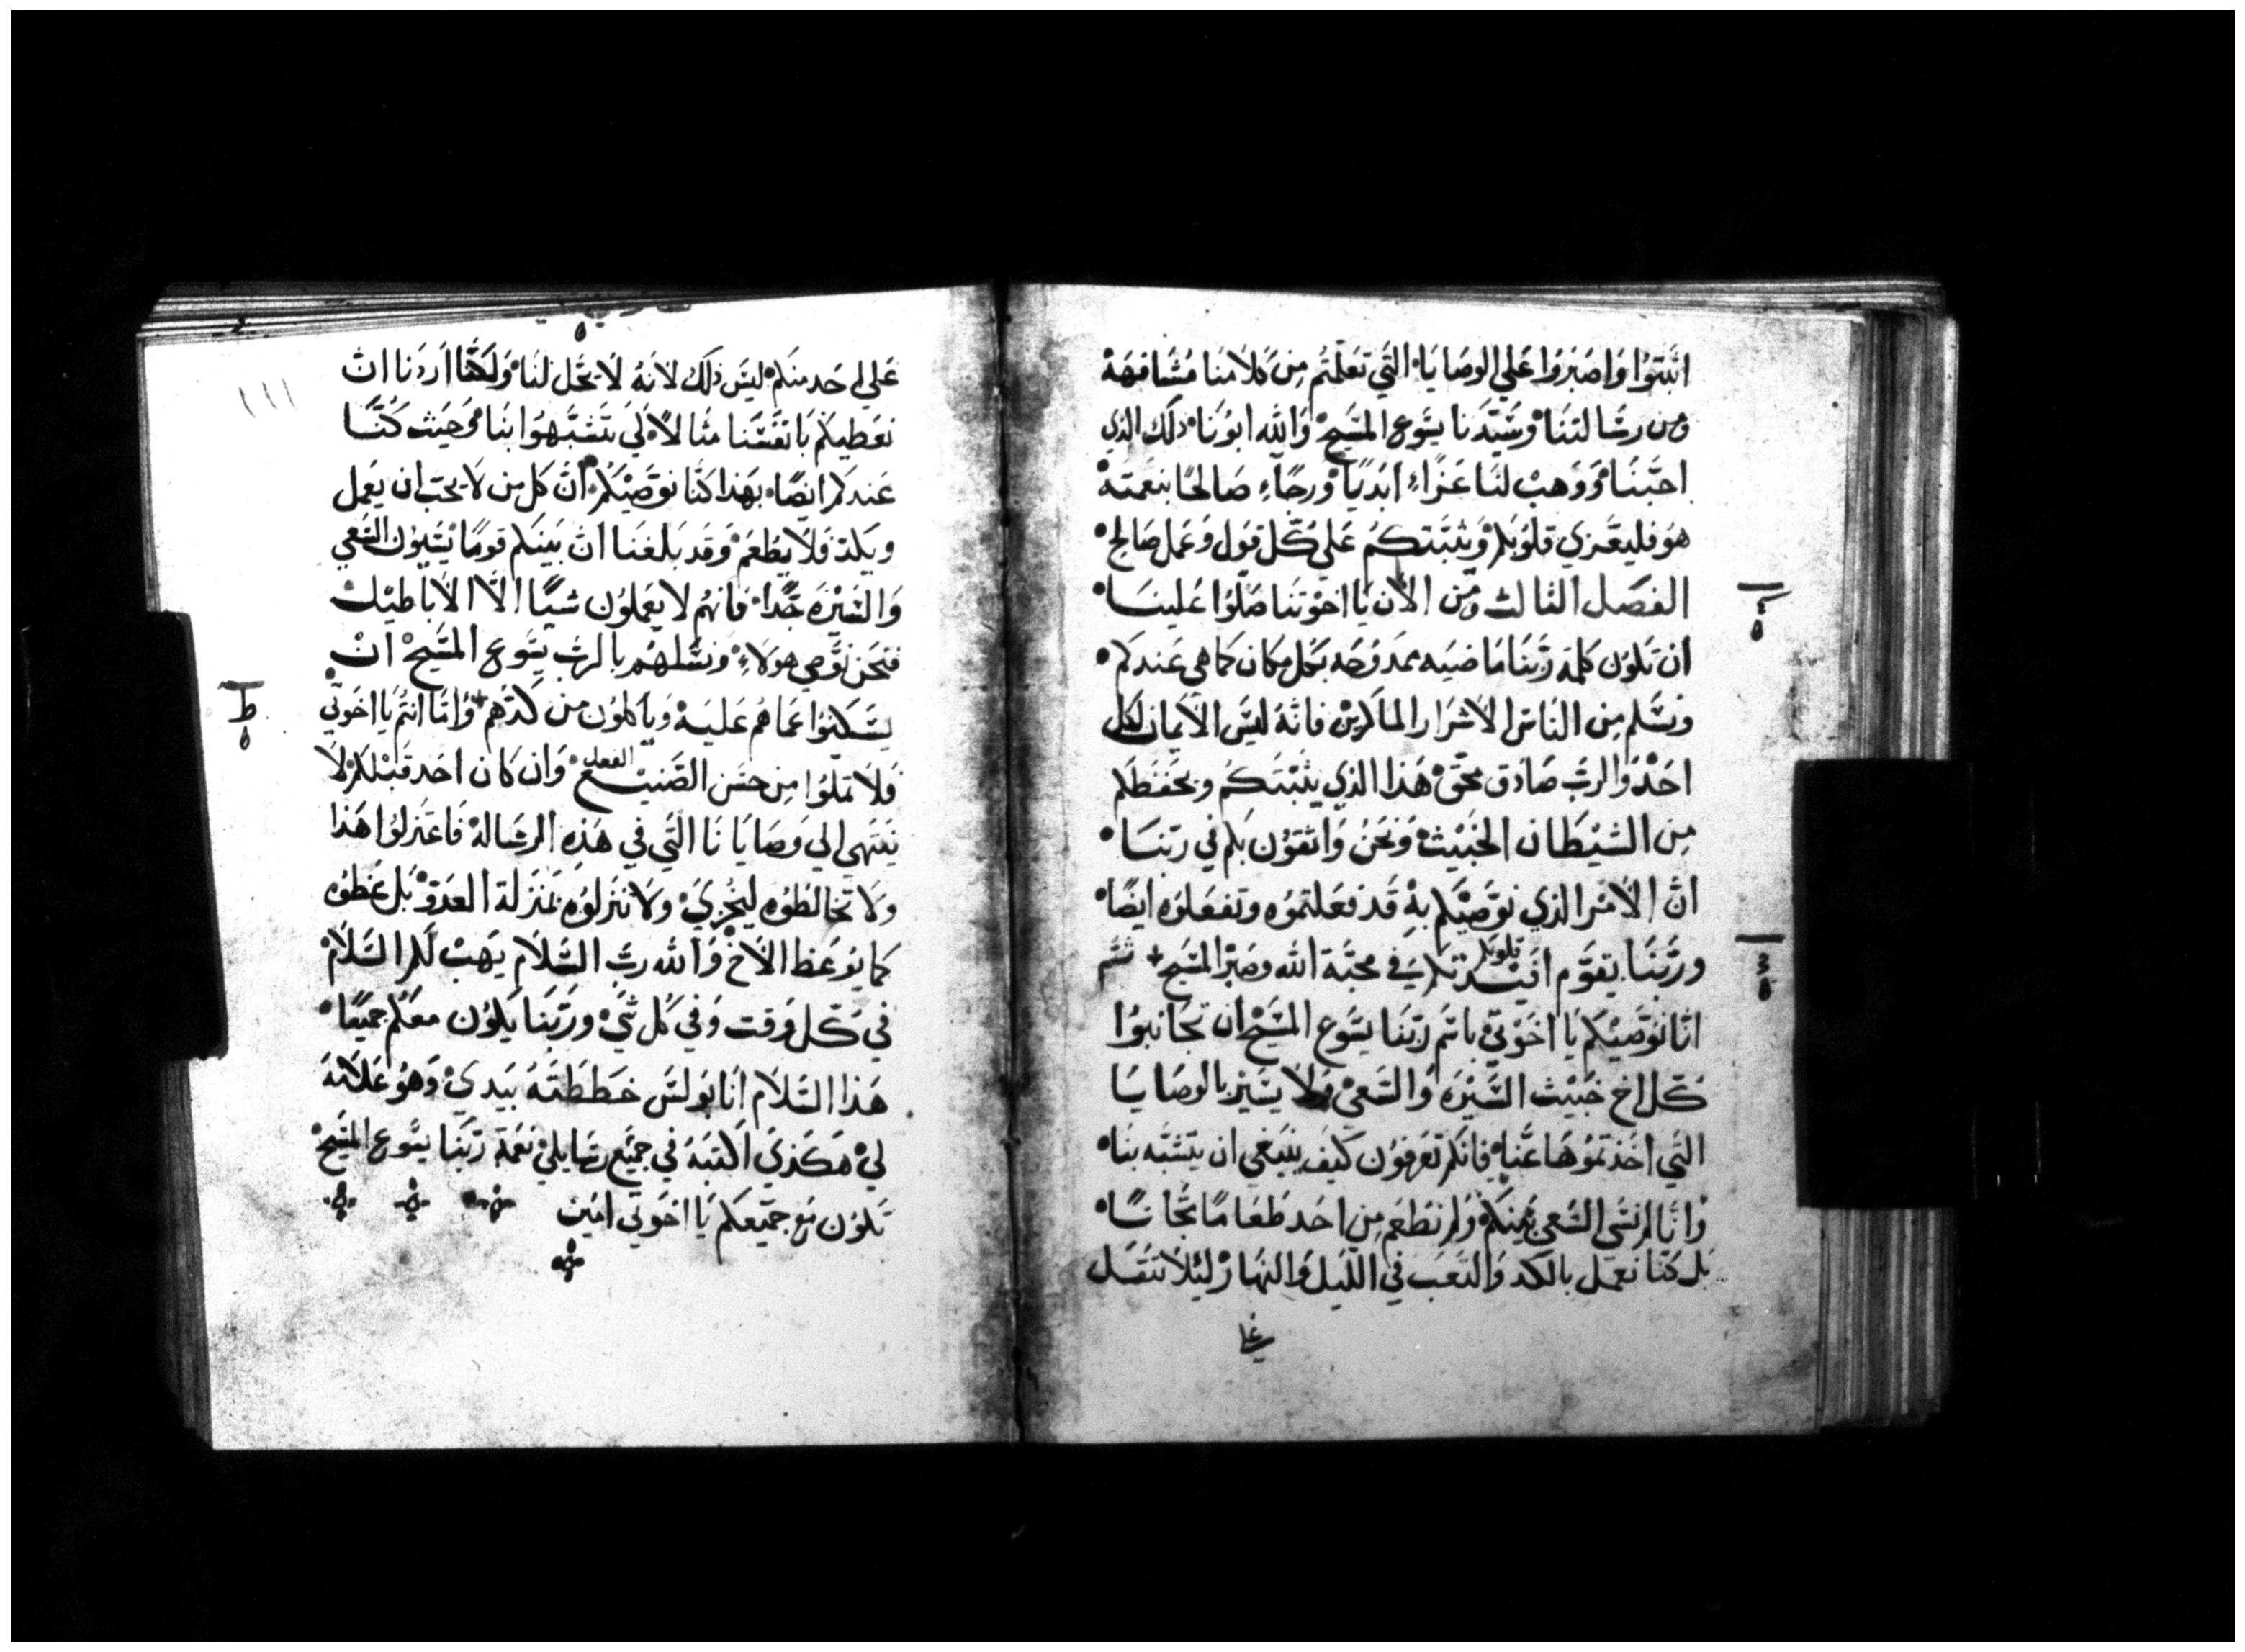 اثبتوا واصبروا علي الوصايا التي تعلمتم من كلامنا مشافهة
ومن رسالتنا وسيدنا يسوع المسيح والله ابونا ذلك الذي
احبنا ووهب لنا عزاء ابديا ورجاء صالحا بنعمته
هو فليعزي قلوبكم ويثبتكم علي كل قول وعمل صالح
الفصل الثالث ومن الان يا اخوتنا صلوا علينا
ان تكون كلمة ربنا ماضيه ممدوحه بكل مكان كما هي عندكم
ونسلم من الناس الاشرار الماكرين فانه ليس الايمان لكل
احد والرب صادق محق هذا الذي يثبتكم ويحفظكم
من الشيطان الخبيث ونحن واثقون بكم في ربنا
ان الامر الذي نوصيكم به قد فعلتموه وتفعلوه ايضا
قلوبكم
وربنا يقوم افيدتكم في محبة الله وصبر المسيح ثم
انا نوصيكم يا اخوتي باسم ربنا يسوع المسيح ان تجانبوا
كل اخ خبيث السيره والسعي ولا يسير بالوصايا
التي اخذتموها عنا فانكم تعرفون كيف ينبغي ان يتشبه بنا
وانا لم نسي السعي بينكم ولم نطعم من احد طعاما مجانا
بل كنا نعمل بالكد والتعب في الليل والنهار ليلا نثقل
علي
علي احد منكم ليس ذلك لانه لا يحل لنا ولكنا اردنا ان
نعطيكم بانفسنا مثالا لي تتشبهوا بنا وحيث كنا
عندكم ايضا بهذا كنا نوصيكم ان كل من لا يحب ان يعمل
ويكد فلا يطعم وقد بلغنا ان بينكم قوما يسيون السعي
والسيره جدا فانهم لا يعملون شيا الا الاباطيل
فنحن نوصي هولاء ونسلهم بالرب يسوع المسيح ان
يسكنوا عما هم عليه وياكلون من كدهم واما انتم يا اخوتي
الفعل
فلا تملوا من حسن الصنيع وان كان احد قبلكم لا
ينتهي الي وصايانا التي في هذه الرساله فاعتزلوا هذا
ولا تخالطوه ليخزي ولا تنزلوه بمنزلة العدو بل عظوه
كما يوعظ الاخ والله رب السلام يهب لكم السلام
في كل وقت وفي كل شي وربنا يكون معكم جميعا
هذا السلام انا بولس خططته بيدي وهو علامة
لي هكذي اكتبه في جميع رسايلي نعمة ربنا يسوع المسيح
تكون مع جميعكم يا اخوتي امين